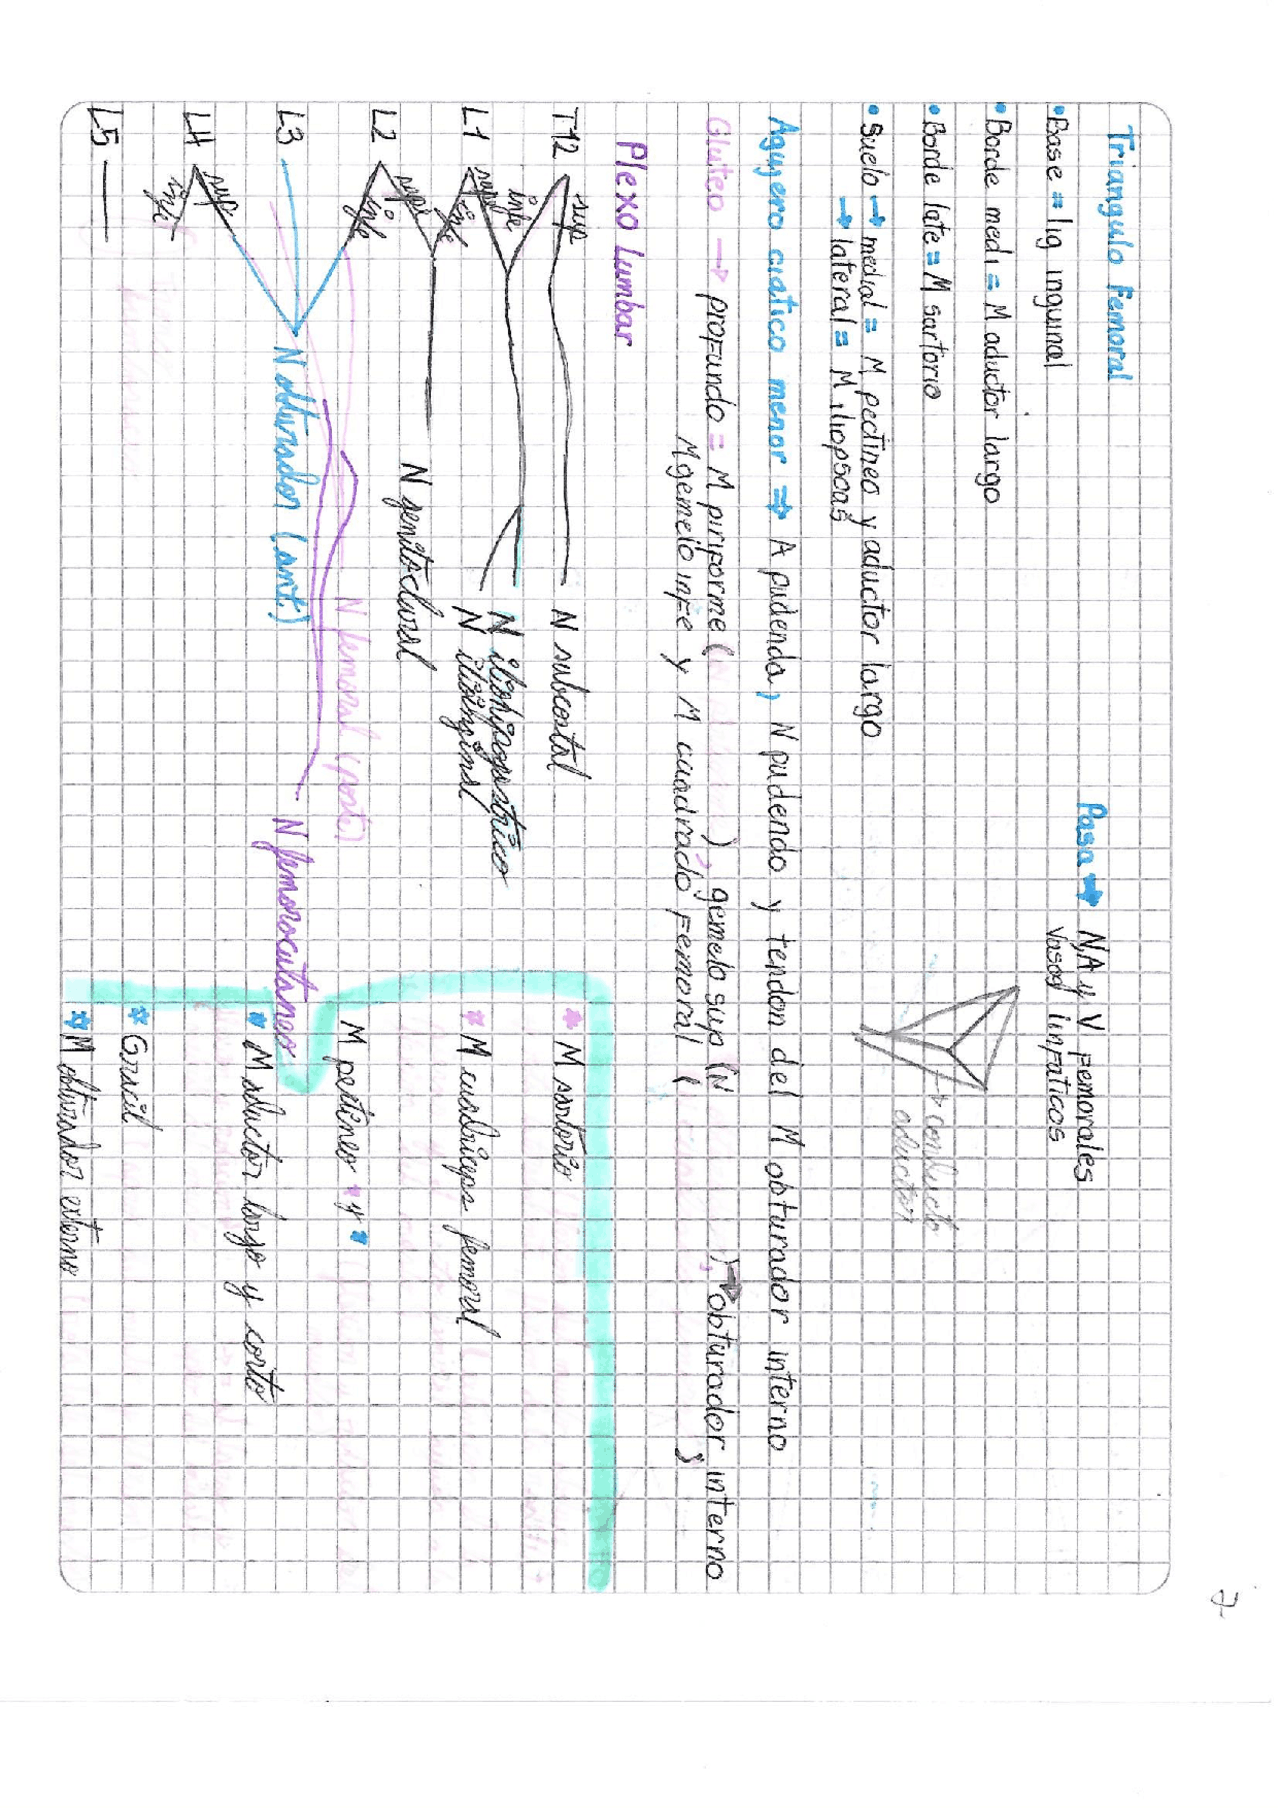 2
Triangulo Femoral
• Base = lig inguinal
• Borde medi = M aductor largo
• Borde late = M sartorio
• Suelo → medial = M pectineo y aductor largo
→ lateral = M iliopsoas
Pasa → N, A y V Femorales
Vasos linfaticos
→ conducto
aductor
Agujero ciatico menor ⇒ A pudenda, N pudendo y tendon del M obturador interno
Gluteo → profundo = M piriforme ( ), gemelo sup (N ), → obturador interno
M gemelo infe y M cuadrado Femoral ( )
Plexo Lumbar
T12 sup
infe
N subcostal
L1 sup
infe
N iliohipogastrico
N ilioinguinal
L2 sup
infe
N genitocrural
L3
N femoral (post)
N obturador (ant)
N femorocutaneo
L4 sup
infe
L5
* M sartorio
* M cuadriceps femoral
M pectineo * y *
* M aductor largo y corto
* Gracil
* M obturador externo